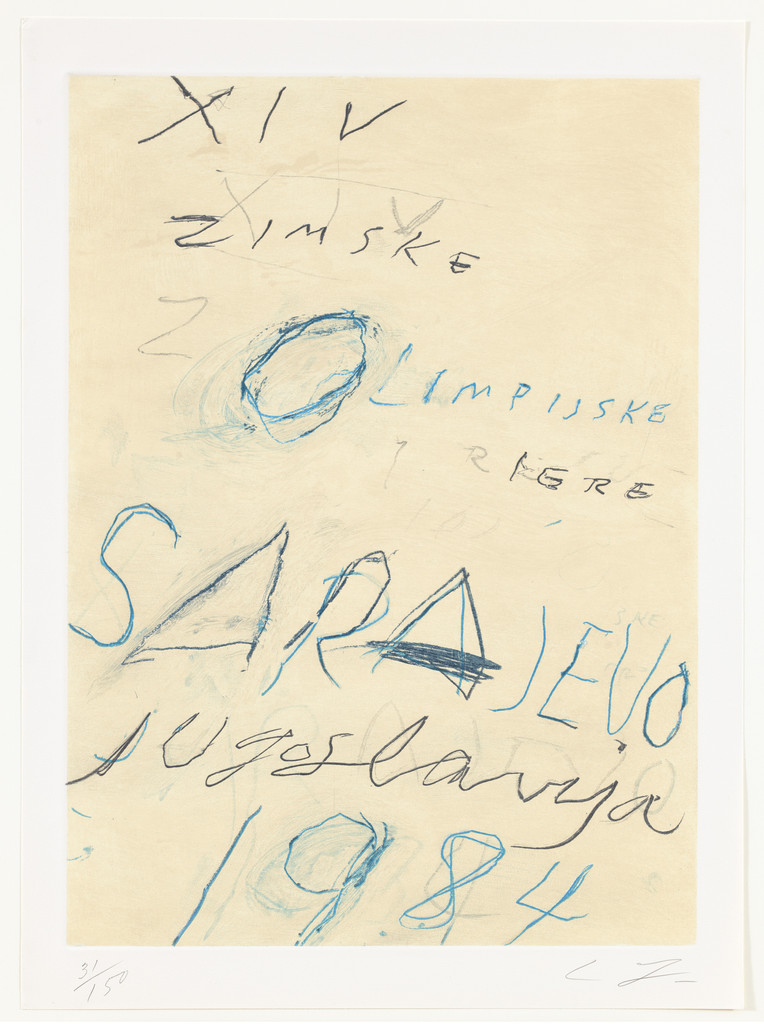 XIV
XIV
ZIMSKE
Z
OLIMPIJSKE
IGRE
SARAJEVO
jugoslavija
1984
31/150